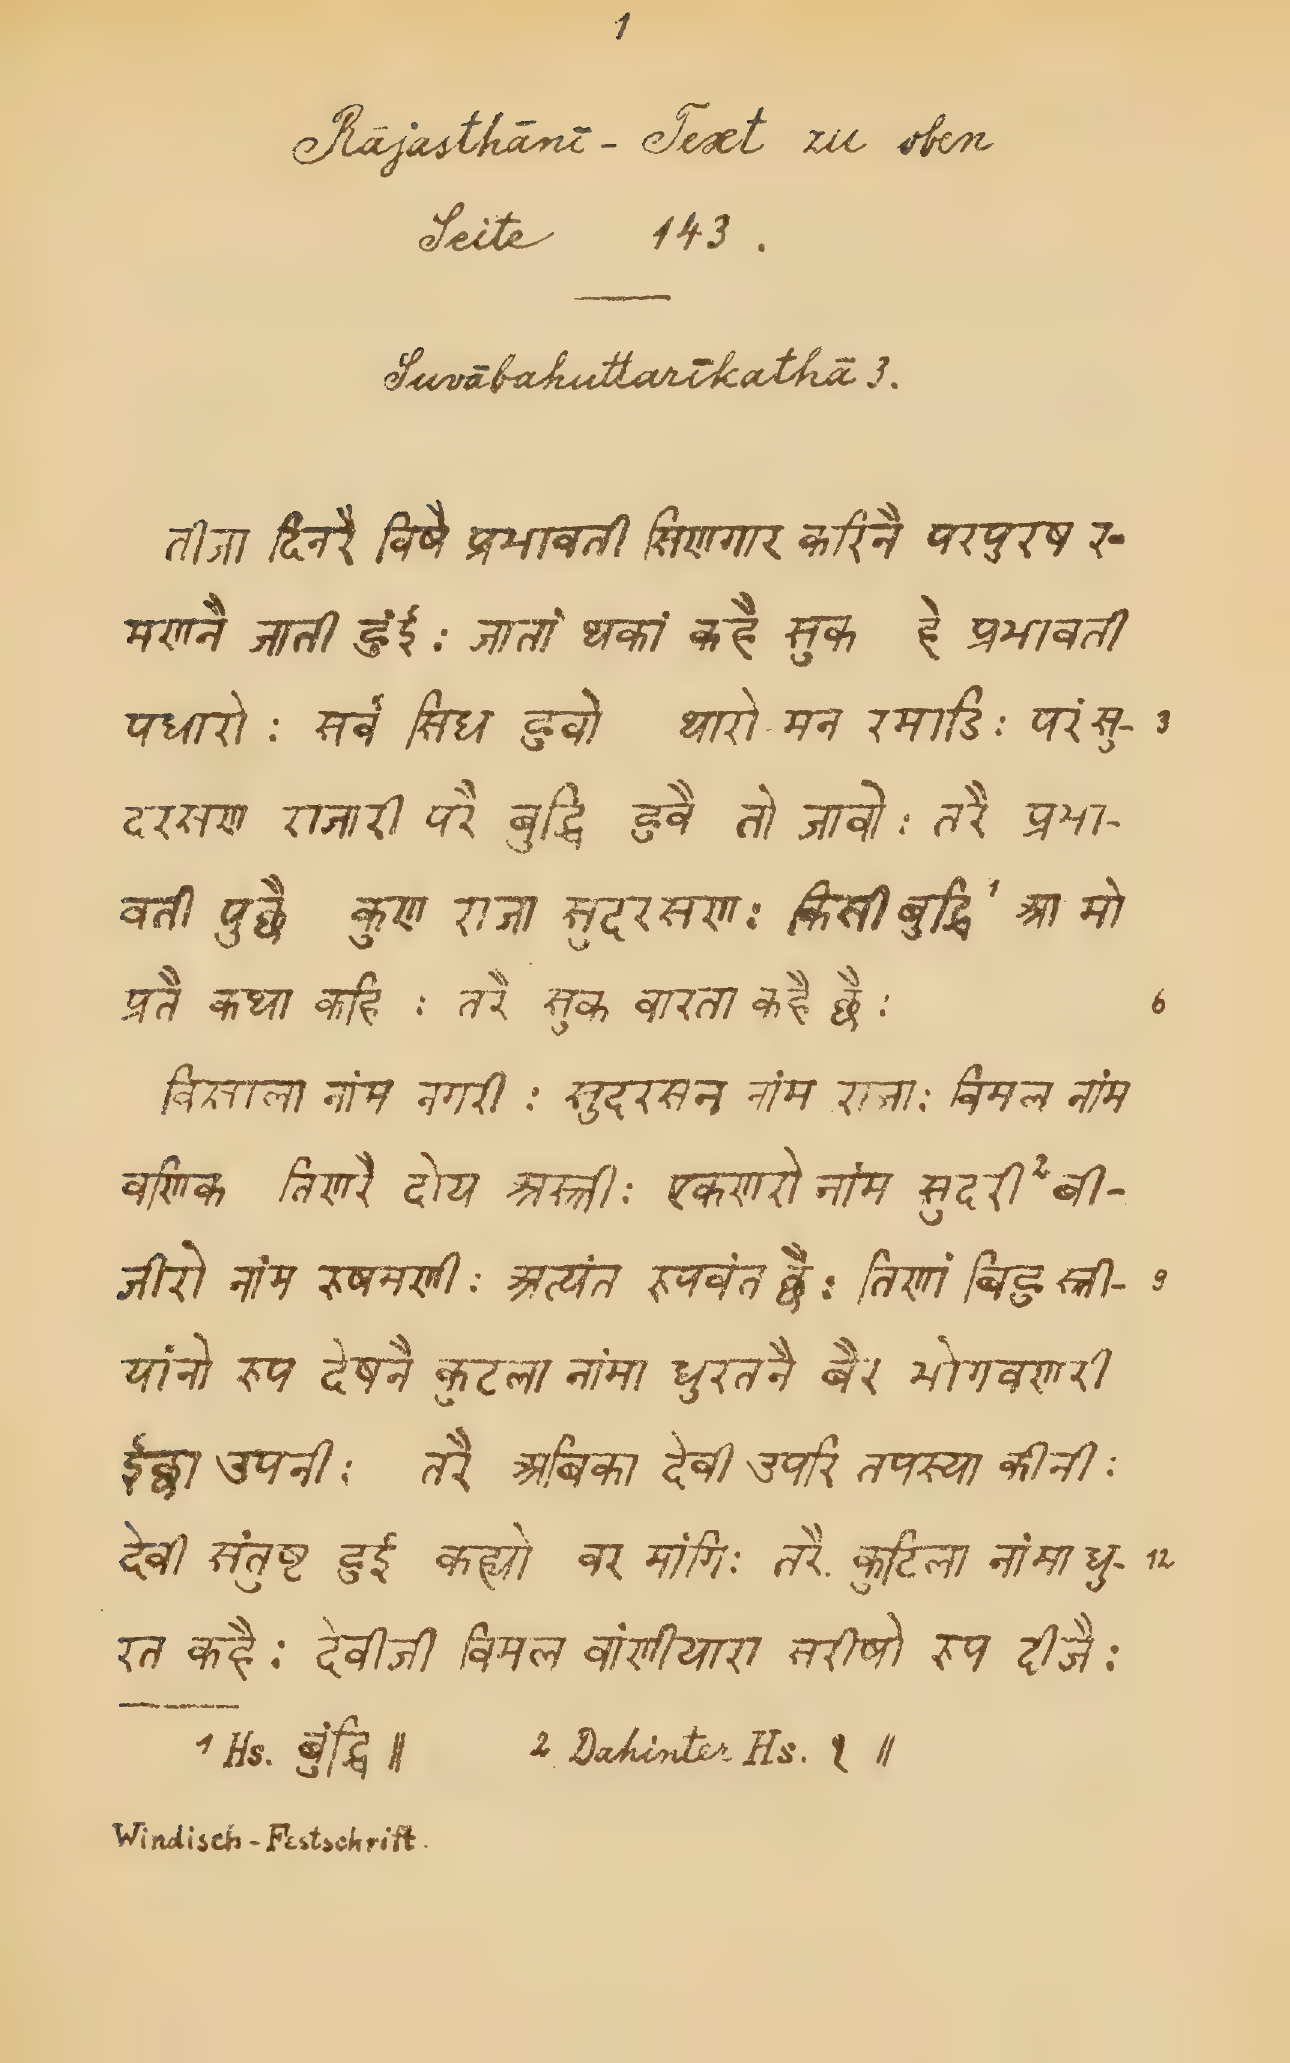 1
Rājasthānī - Text zu oben
Seite 143.
Suvābahuttarīkathā 3.
तीजा दिनरै विषै प्रभावती सिणगार करिनै परपुरष र-
मणनै जाती हुंई : जातां थकां कहै सुक हे प्रभावती
पधारो : सर्व सिध हुवो थारो मन रमाडि : परं सु- 3
दरसण राजारी परै बुद्धि हुवै तो जावो : तरै प्रभा-
वती पुछै कुण राजा सुदरसण : किसी बुद्धि¹ आ मो
प्रतै कथा कहि : तरै सुक वारता कहै छै : 6
विसाला नांम नगरी : सुदरसन नांम राजा : विमल नांम
वणिक तिणरै दोय अस्त्री : एकणरो नांम सुदरी² बी-
जीरो नांम रुषमणी : अत्यंत रूपवंत छै : तिणां बिहु स्त्री- 9
यांनो रूप देषनै कुटला नांमा धुरतनै बैर भोगवणरी
ईछा उपनी : तरै अंबिका देवी उपरि तपस्या कीनी :
देवी संतुष्ट हुई कह्यो वर मांगि : तरै कुटिला नांमा धु- 12
रत कहै : देवीजी विमल वांणीयारा सरीषो रूप दीजै :
1 Hs. बुंद्धि ॥ 2 Dahinter Hs. १ ॥
Windisch - Festschrift.